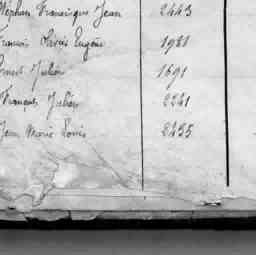 Stéphan Francique Jean 2443
Francis Olivier Eugène 1981
Ernest Julien 1691
François Julien 2221
Jean Marie Louis 2435